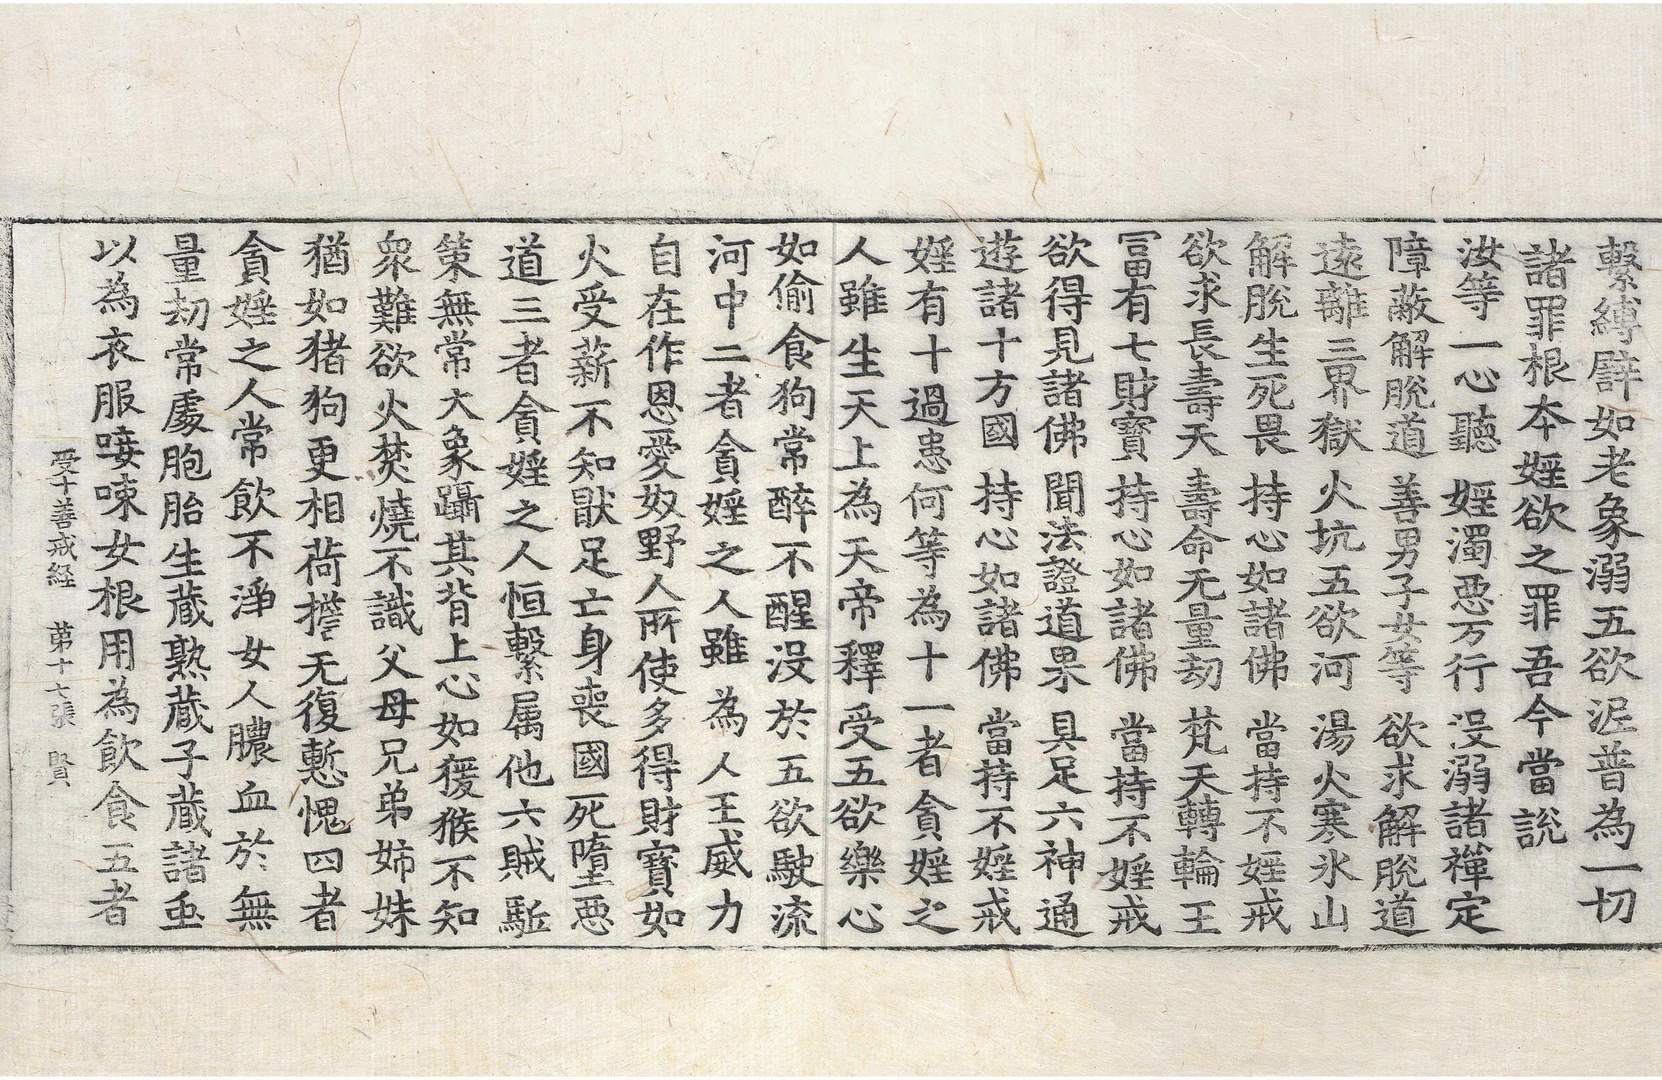 繫縛譬如老象溺五欲泥普為一切
諸罪根本婬欲之罪吾今當說
汝等一心聽 婬濁惡万行 没溺諸禪定
障蔽解脫道 善男子女等 欲求解脫道
遠離三界獄 火坑五欲河 湯火寒氷山
解脫生死畏 持心如諸佛 當持不婬戒
欲求長壽天 壽命无量劫 梵天轉輪王
冨有七財寶 持心如諸佛 當持不婬戒
欲得見諸佛 聞法證道果 具足六神通
遊諸十方國 持心如諸佛 當持不婬戒
婬有十過患何等為十一者貪婬之
人雖生天上為天帝釋受五欲樂心
如偷食狗常醉不醒没於五欲駛流
河中二者貪婬之人雖為人王威力
自在作恩愛奴野人所使多得財寶如
火受薪不知猒足亡身喪國死墮惡
道三者貪婬之人恒繫属他六賊駈
策無常大象躡其背上心如猨猴不知
衆難欲火焚燒不識父母兄弟姉妹
猶如猪狗更相荷擔无復慙愧四者
貪婬之人常飲不淨女人膿血於無
量劫常處胞胎生藏熟藏子藏諸䖝
以為衣服唼㖨女根用為飲食五者
受十善戒経 苐十七張 賢